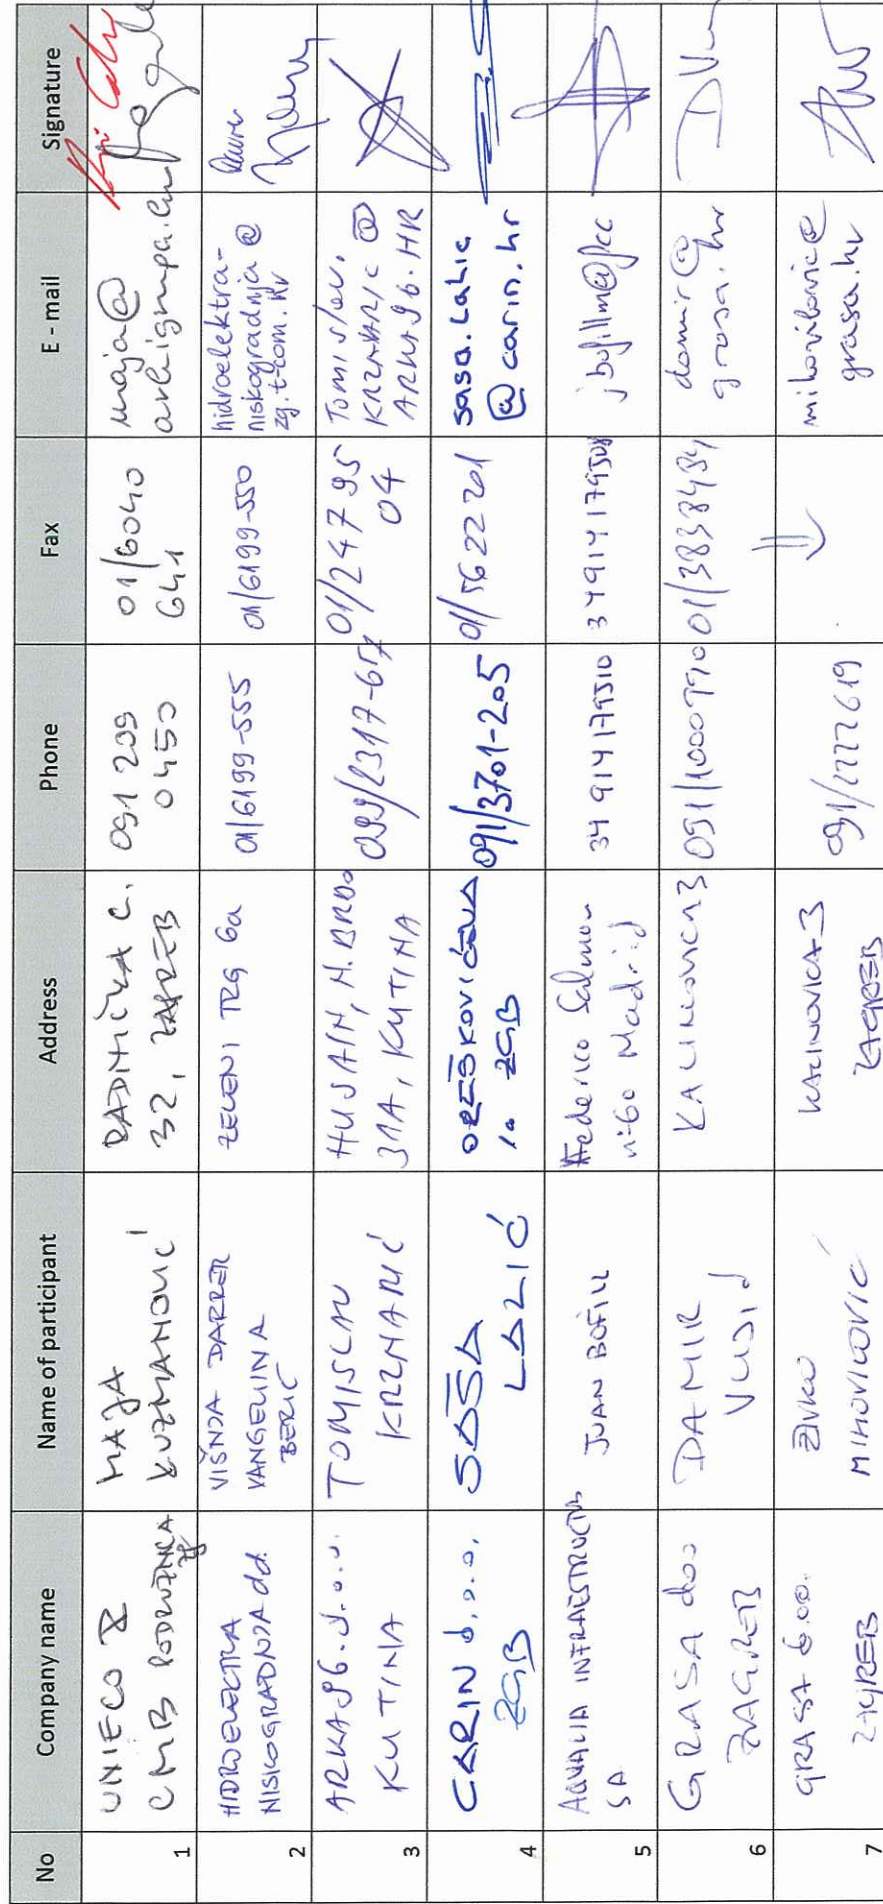 No Company name Name of participant Address Phone Fax E - mail Signature
1
UNIECO &
CMB PODRUŽNICA
MAJA
KUZMANOVIĆ
RADNIČKA C.
32, ZAGREB
091 209
0450
01/6040
641
maja@
2
HIDROELEKTRA
NISKOGRADNJA d.d.
VIŠNJA DARRER
VANGELINA
BERIĆ
ZELENI TRG 6a
01/6199-555
01/6199-550
hidroelektra-
niskogradnja@
zg.t-com.hr
3
ARKA96.d.o.o.
KUTINA
TOMISLAV
KRZNARIĆ
HUSAIN, N. BRDO
31A, KUTINA
01/24795
04
TOMISLAV.
KRZNARIC@
ARKA96.HR
4
CARIN d.o.o.
ZGB
SAŠA
LALIĆ
OREŠKOVIĆEVA
ZGB
091/3701-205
01/5622201
sasa.lalic
@carin.hr
5
AQUALIA INFRAESTRUCTURAS
SA
JUAN BOFILL
Federico Salmon
nº60 Madrid
34 914179510
34914179508
jbofillm@fcc
6
GRASA doo
ZAGREB
DAMIR
KALINOVICA 3
091/1000990
01/3838434
damir@
grasa.hr
7
GRASA d.o.o.
ZAGREB
ŽIVKO
MIHOVILOVIĆ
KALINOVICA 3
ZAGREB
mihovilovic@
grasa.hr